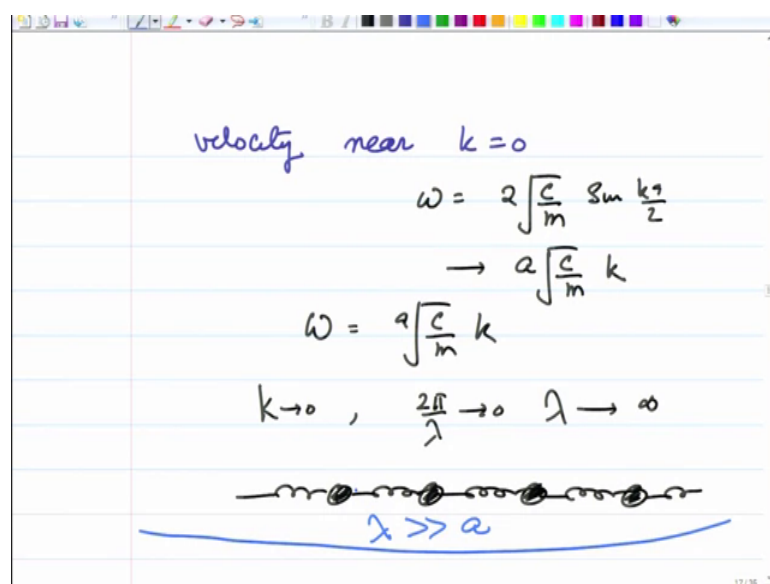 velocity near k = 0
ω = 2√(c/m) Sin ka/2
→ a√(c/m) k
ω = a√(c/m) k
k→0 , 2π/λ →0 λ → ∞
λ >> a
17/35